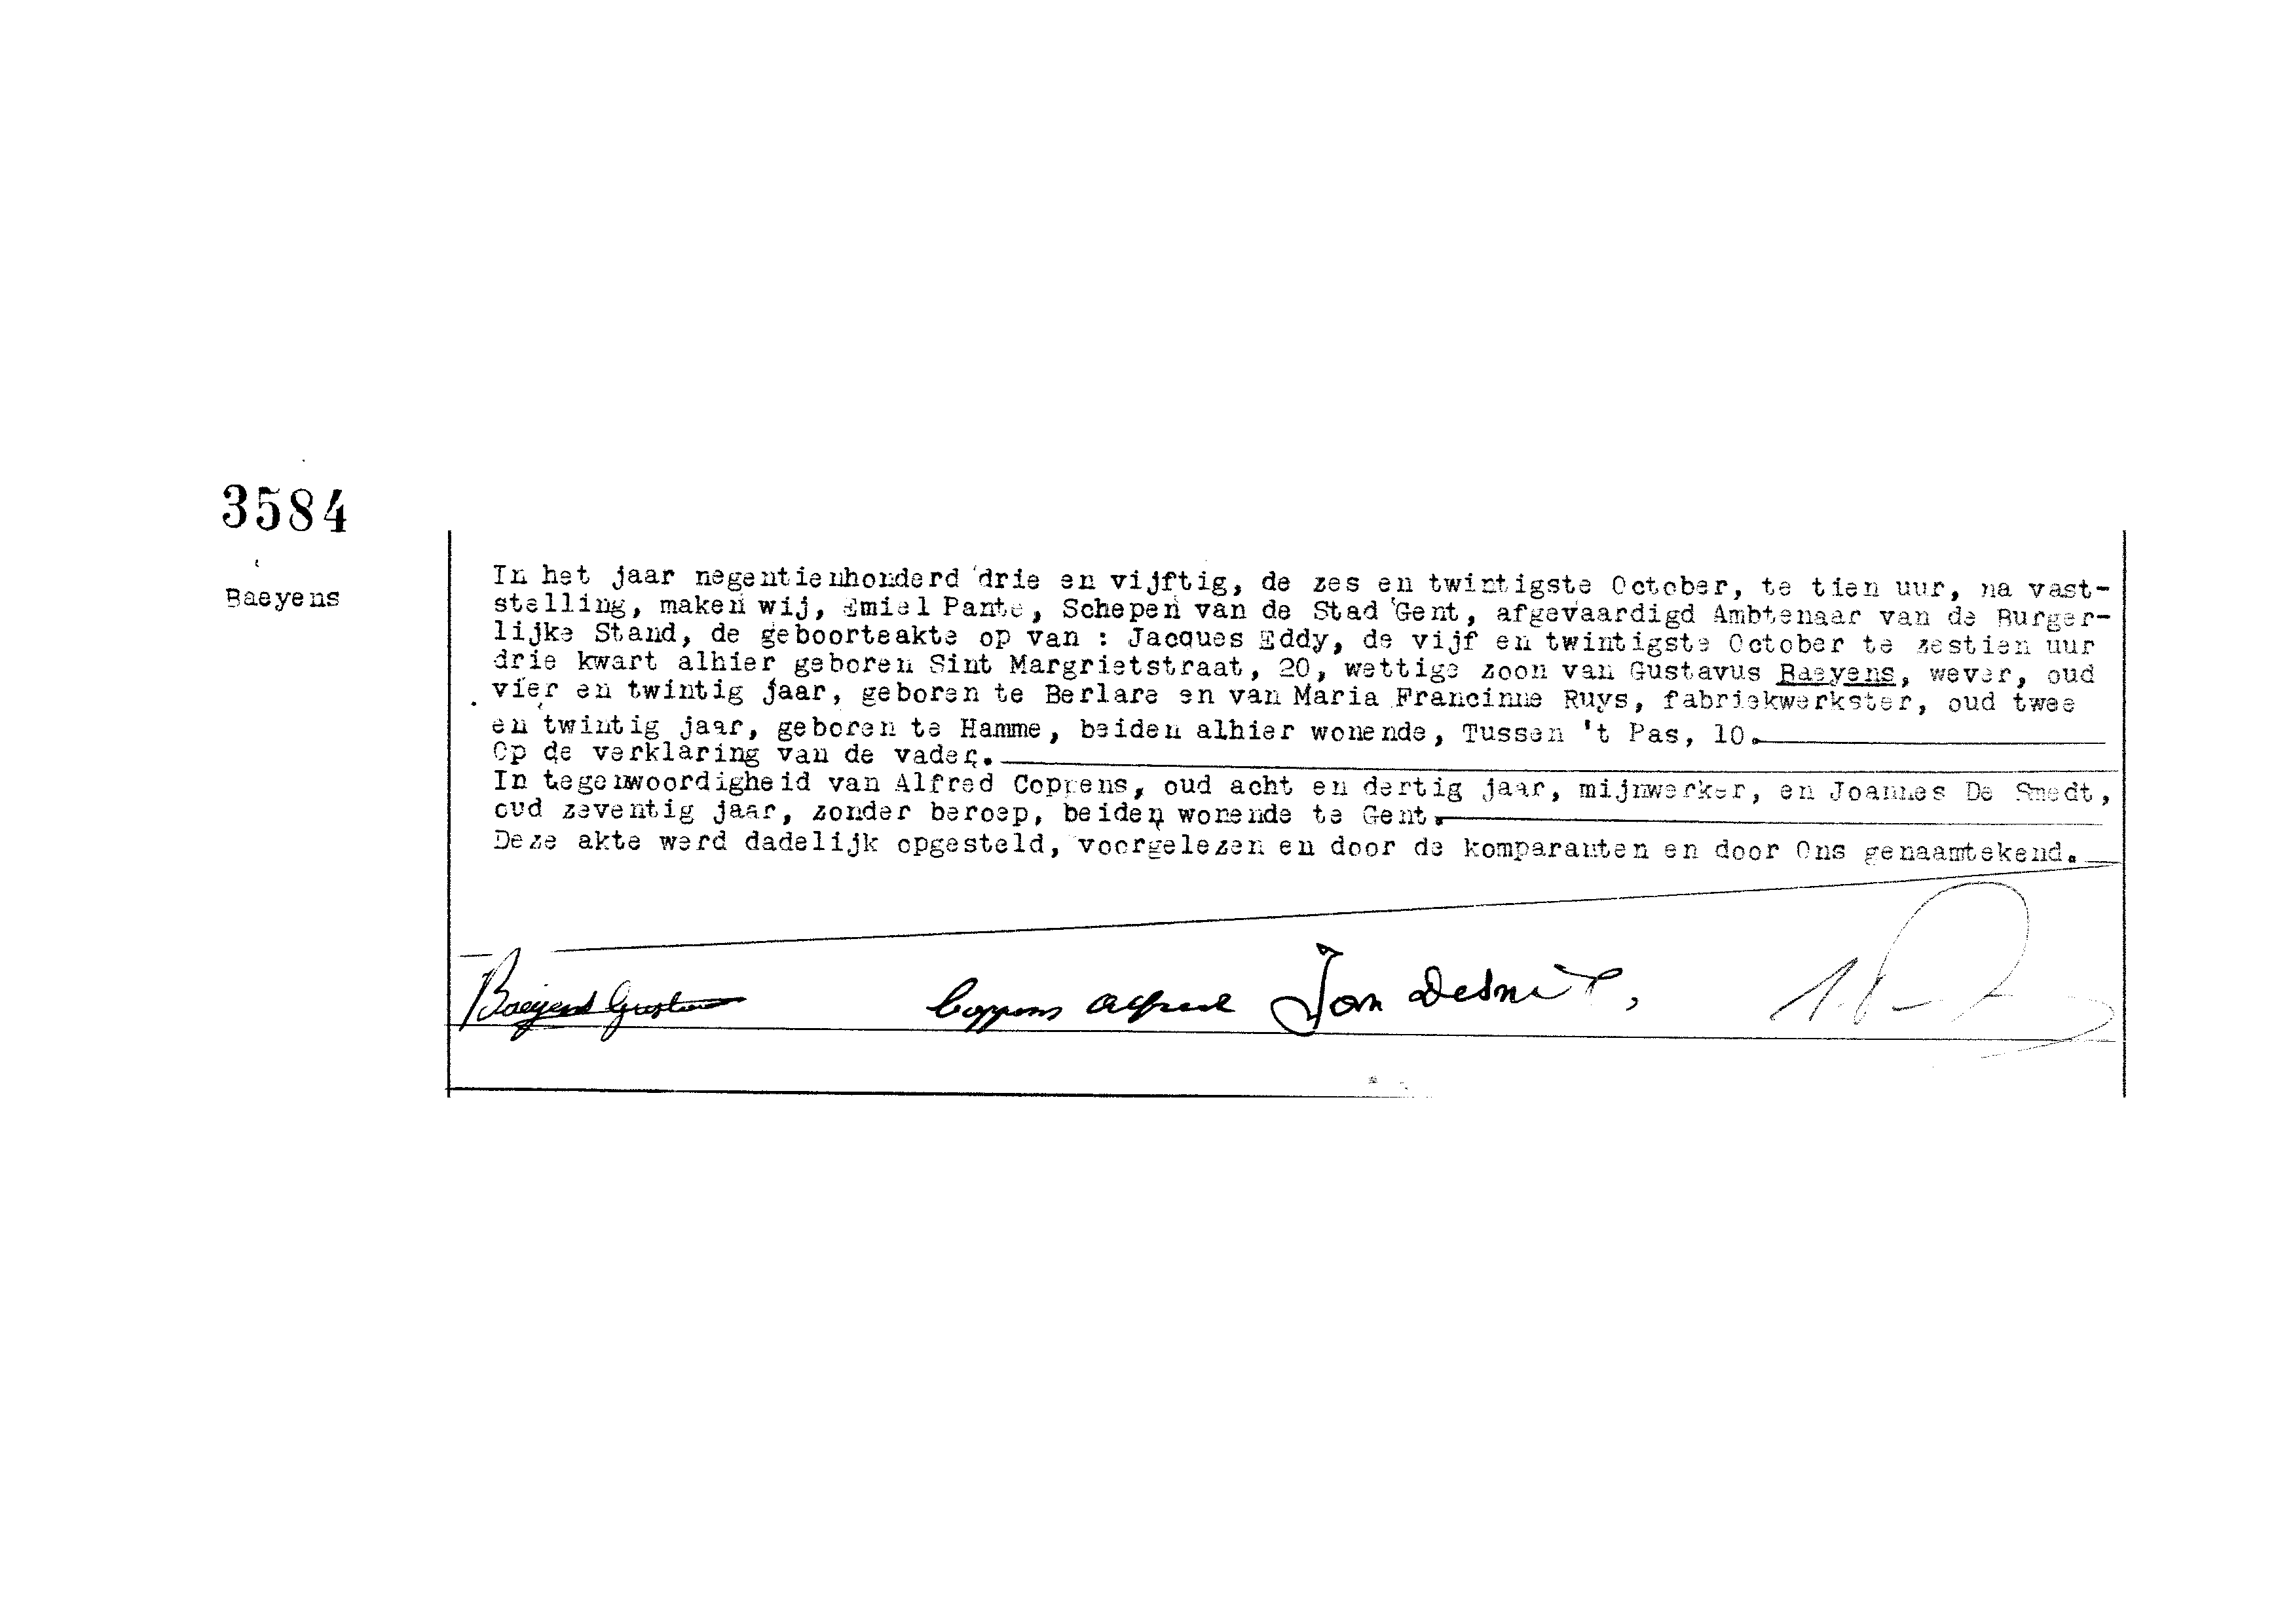 3584
Baeyens
In het jaar negentienhonderd drie en vijftig, de zes en twintigste October, te tien uur, na vast-
stelling, maken wij, Emiel Pante, Schepen van de Stad Gent, afgevaardigd Ambtenaar van de Burger-
lijke Stand, de geboorteakte op van : Jacques Eddy, de vijf en twintigste October te zestien uur
drie kwart alhier geboren Sint Margrietstraat, 20, wettige zoon van Gustavus Baeyens, wever, oud
vier en twintig jaar, geboren te Berlare en van Maria Francinne Ruys, fabriekwerkster, oud twee
en twintig jaar, geboren te Hamme, beiden alhier wonende, Tussen 't Pas, 10.
Op de verklaring van de vader.
In tegenwoordigheid van Alfred Coppens, oud acht en dertig jaar, mijnwerker, en Joannes De Smedt,
oud zeventig jaar, zonder beroep, beiden wonende te Gent.
Deze akte werd dadelijk opgesteld, voorgelezen en door de komparanten en door Ons genaamtekend.
Baeyens Gustaaf Coppens Alfred Jan Desmet,